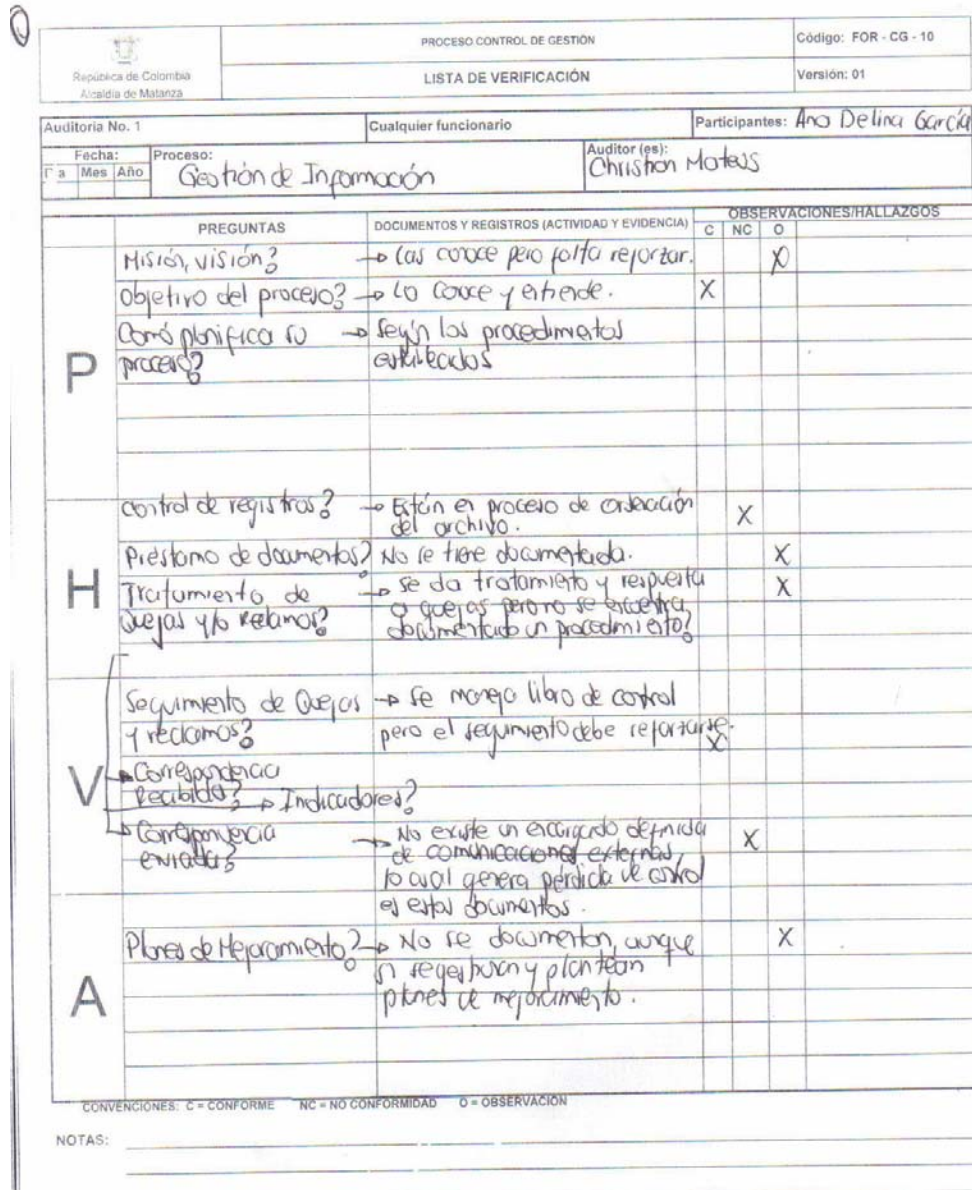 PROCESO CONTROL DE GESTIÓN
Código: FOR - CG - 10
República de Colombia
Alcaldía de Matanza
LISTA DE VERIFICACIÓN
Versión: 01
Auditoria No. 1
Cualquier funcionario
Participantes: Ana Delina García
Fecha:
Proceso:
Gestión de Información
Auditor (es):
Christian Mateus
Mes Año
PREGUNTAS
DOCUMENTOS Y REGISTROS (ACTIVIDAD Y EVIDENCIA)
OBSERVACIONES/HALLAZGOS
C NC O
P
Misión, visión? → Las conoce pero falta reforzar. X
Objetivo del proceso? → Lo conoce y entiende. X
Comó planifica su → Según los procedimientos
proceso? establecidos
H
Control de registros? → Están en proceso de ordenación X
del archivo.
Préstamo de documentos? No se tiene documentada. X
Tratamiento de → se da tratamiento y respuesta X
Quejas y/o reclamos? a quejas pero no se encuentra
documentado un procedimiento?
V
Seguimiento de Quejas → Se maneja libro de control
y reclamos? pero el seguimiento debe reforzarse. X
→ Correspondencia
Recibida? → Indicadores?
→ Correspondencia → No existe un encargado definido X
enviada? de comunicaciones externas,
lo cual genera pérdida de control
es estos documentos.
A
Planes de Mejoramiento? → No se documentan, aunque X
si se gestionan y plantean
planes de mejoramiento.
CONVENCIONES: C = CONFORME NC = NO CONFORMIDAD O = OBSERVACIÓN
NOTAS: